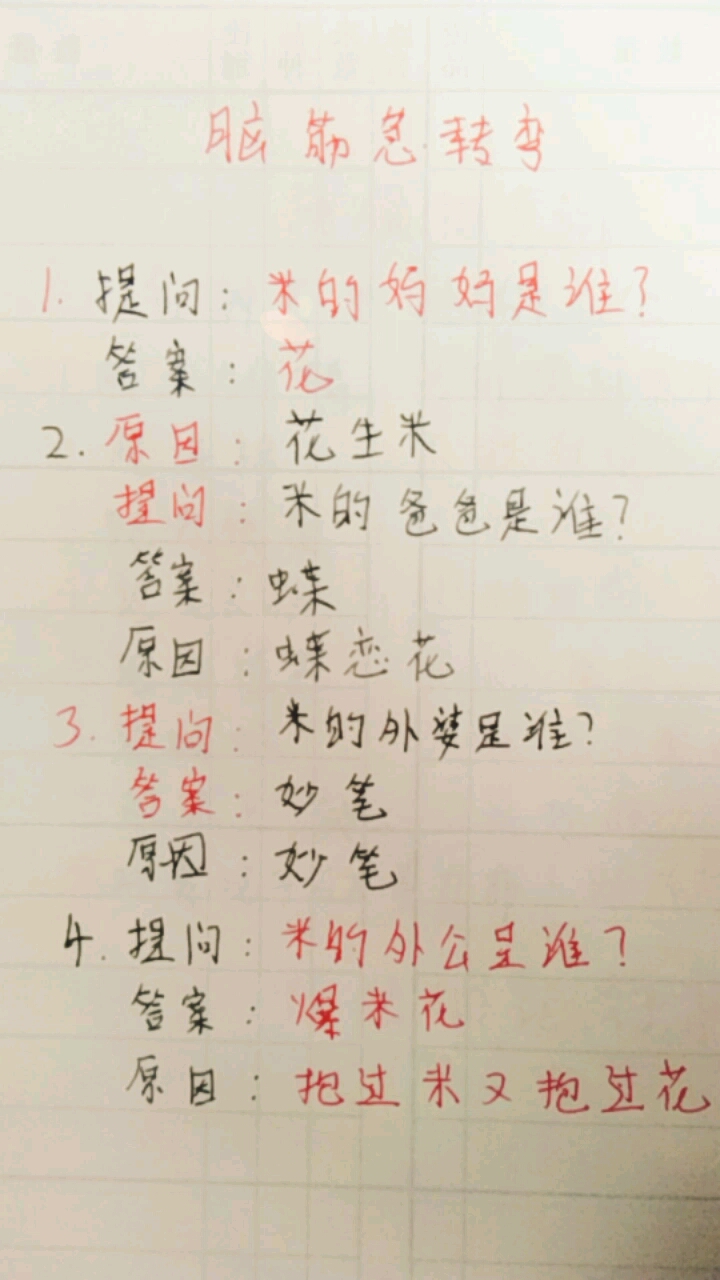 脑筋急转弯
1. 提问：米的妈妈是谁？
答案：花
2. 原因：花生米
提问：米的爸爸是谁？
答案：蝶
原因：蝶恋花
3. 提问：米的外婆是谁？
答案：妙笔
原因：妙笔
4. 提问：米的外公是谁？
答案：爆米花
原因：抱过米又抱过花